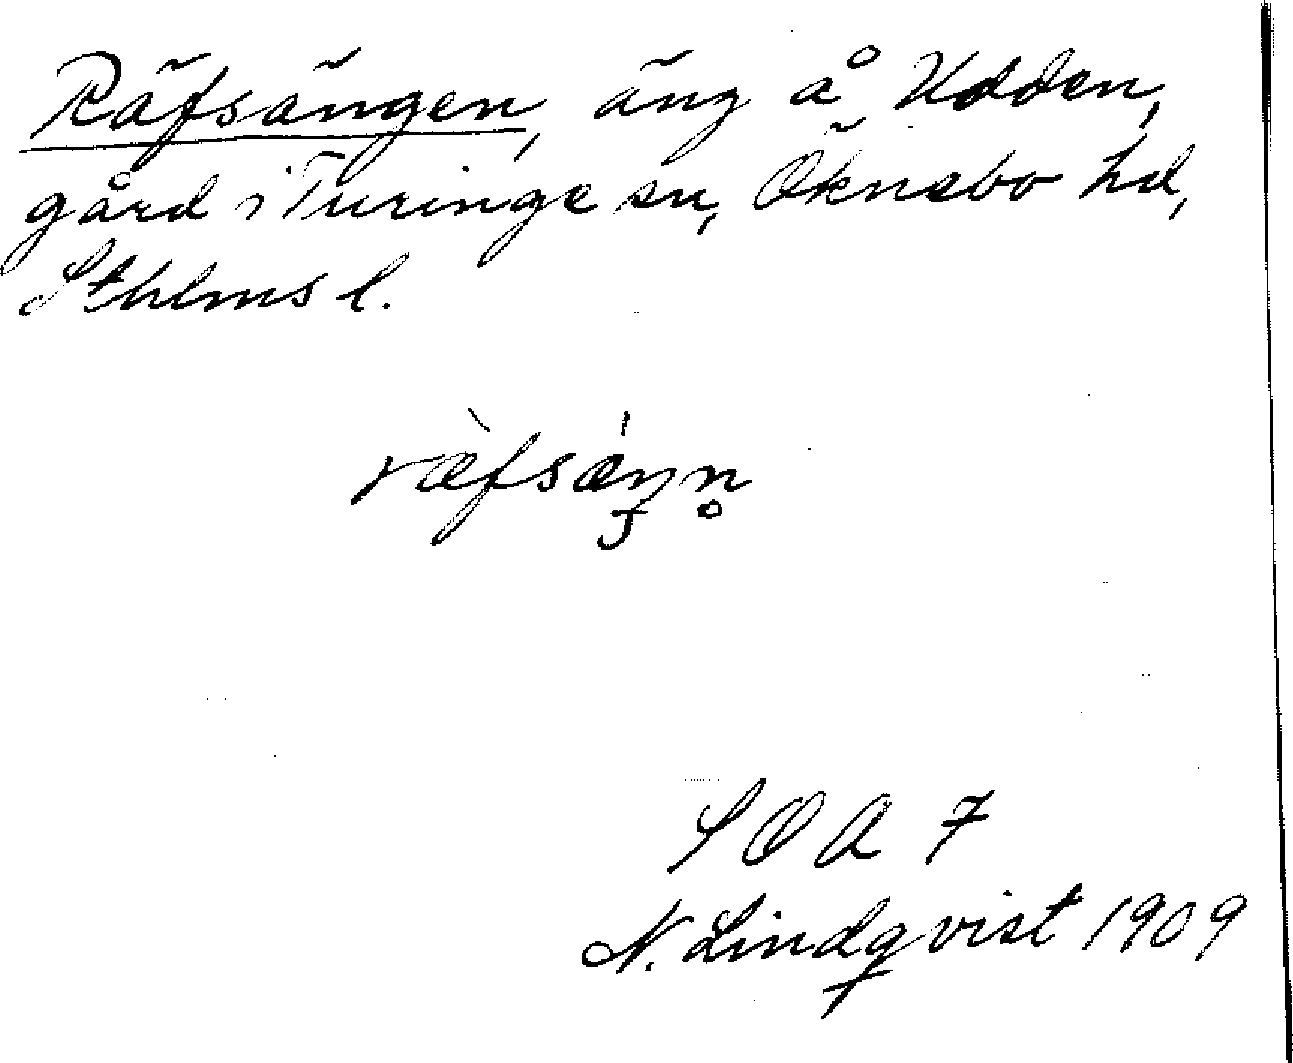 Räfsängen, äng å Udden,
gård i Turinge sn, Öknebo hd,
Sthlms l.
ræ̀fsǽŋn̥
SOA 7
N. Lindqvist 1909